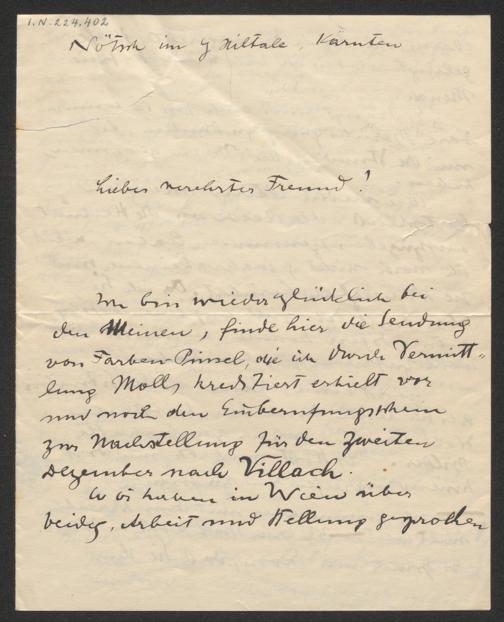 I.N. 224.402
Nötsch im Gailtale, Kärnten
Lieber verehrter Freund!
Ich bin wieder glücklich bei
den Meinen, finde hier die Sendung
von Farben Pinsel, die ich durch Vermitt-
lung Molls kreditiert erhielt vor
und noch den Einberufungsschein
zur Nachstellung für den zweiten
Dezember nach Villach.
haben in Wien über
beides, Arbeit und Stellung gesprochen